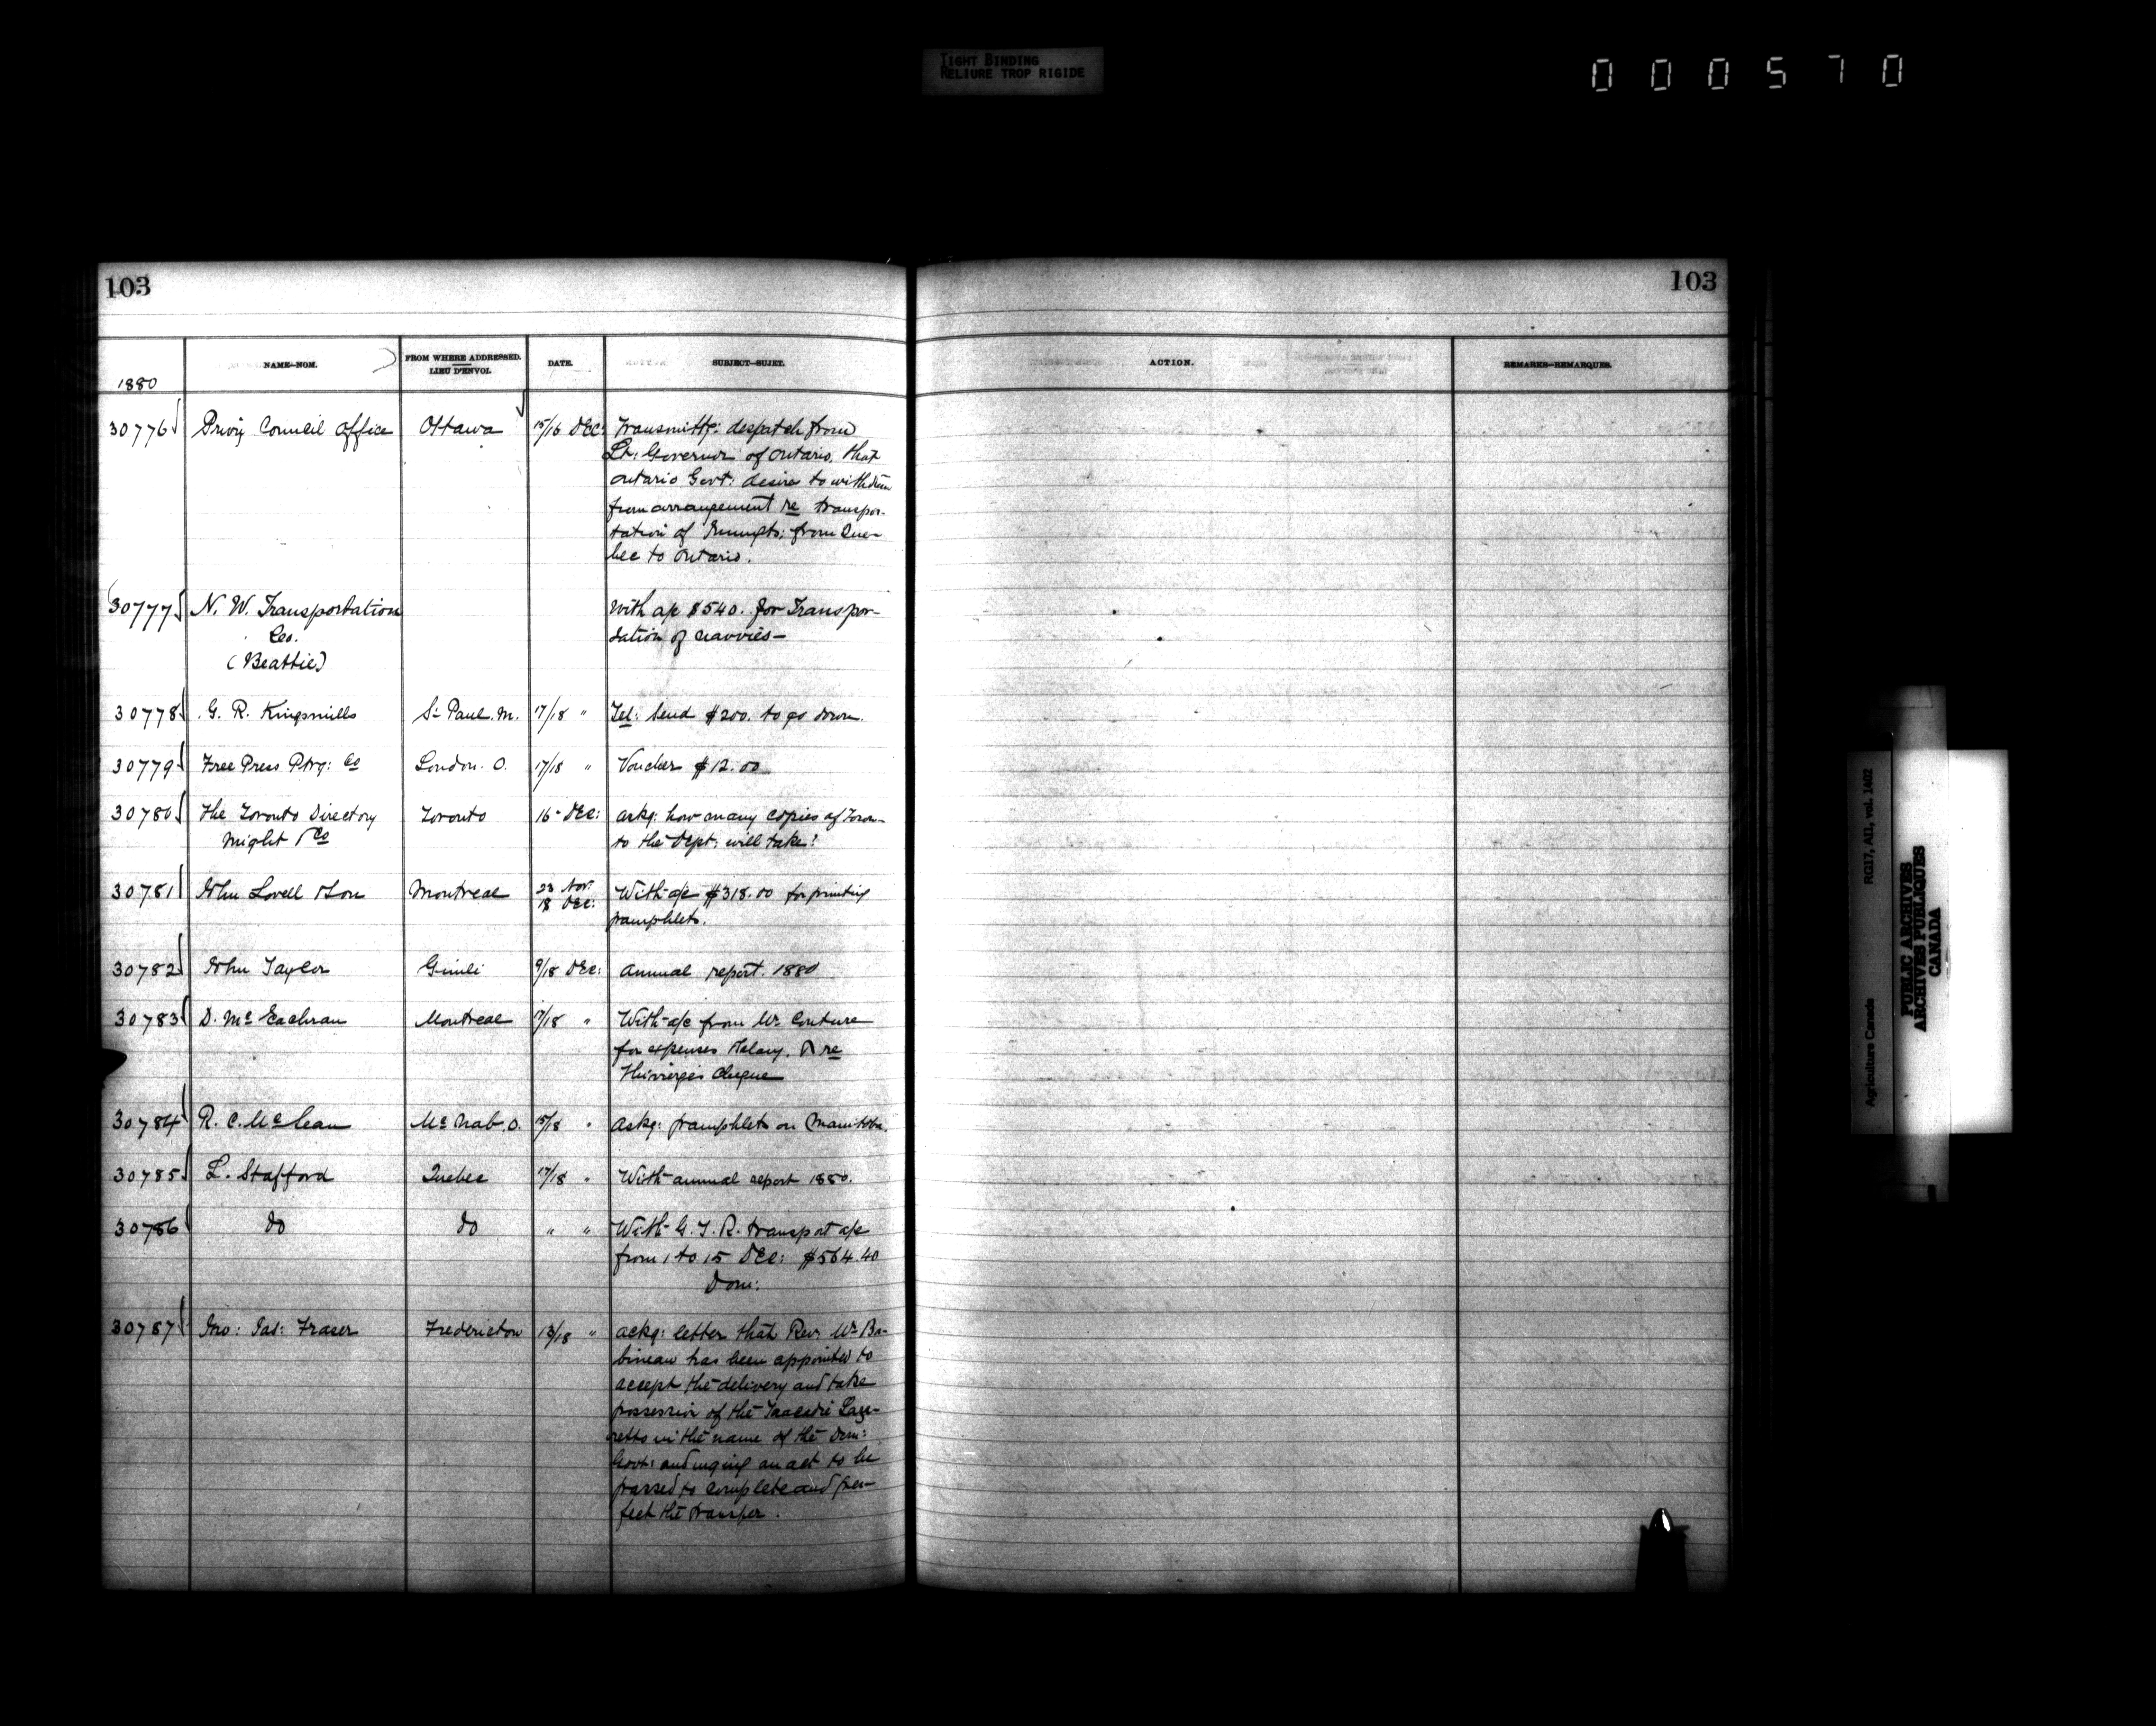 TIGHT BINDING
RELIURE TROP RIGIDE
000570
103
103
1880
NAME—NOM.
FROM WHERE ADDRESSED.
LIEU D'ENVOI.
DATE.
SUBJECT—SUJET.
ACTION.
REMARKS—REMARQUES.
30776 Privy Council Office Ottawa 15/16 Dec: Transmittg: despatch from
Lt: Governor of Ontario. that
Ontario Govt: desires to withdraw
from arrangement re transpor-
tation of Immgts: from Que-
bec to Ontario.
30777 N. W. Transportation With a/c $540. for Transpor-
Co. tation of navvies—
(Beattie)
30778 G. R. Kingsmills St Paul. M. 17/18 " Tel: Send $200. to go down.
30779 Free Press Ptrg: Co London. O. 17/18 " Voucher $12.00
30780 The Toronto Directory Toronto 16 - Dec: askg: how many copies of Toron-
Might & Co to the Dept: will take!
30781 John Lovell & Son Montreal 23 Nov: With a/c $318.00 for printing
18 Dec: pamphlets.
30782 John Taylor Gimli 9/18 Dec: annual report. 1880
30783 D. Mc Eachran Montreal 17/18 " With a/c from Mr Couture
for expenses & salary. & re
cheque
30784 R. C. McLean Mc Nab. O. 15/18 " askg: pamphlets on Manitoba.
30785 L. Stafford Quebec 17/18 " With annual report 1880.
30786 do do " " With G. T. R. transport a/c
from 1 to 15 Dec: $564.40
Dom:
30787 Jno: Jas: Fraser Fredericton 13/18 " ackg: letter that Rev: Mr Ba-
bineau has been appointed to
accept the delivery and take
possession of the Tracadie Laza-
retto in the name of the Dom:
Govt: and urging an act to be
passed to complete and per-
fect the transfer.
Agriculture Canada RG17, AII, vol. 1402
PUBLIC ARCHIVES
ARCHIVES PUBLIQUES
CANADA